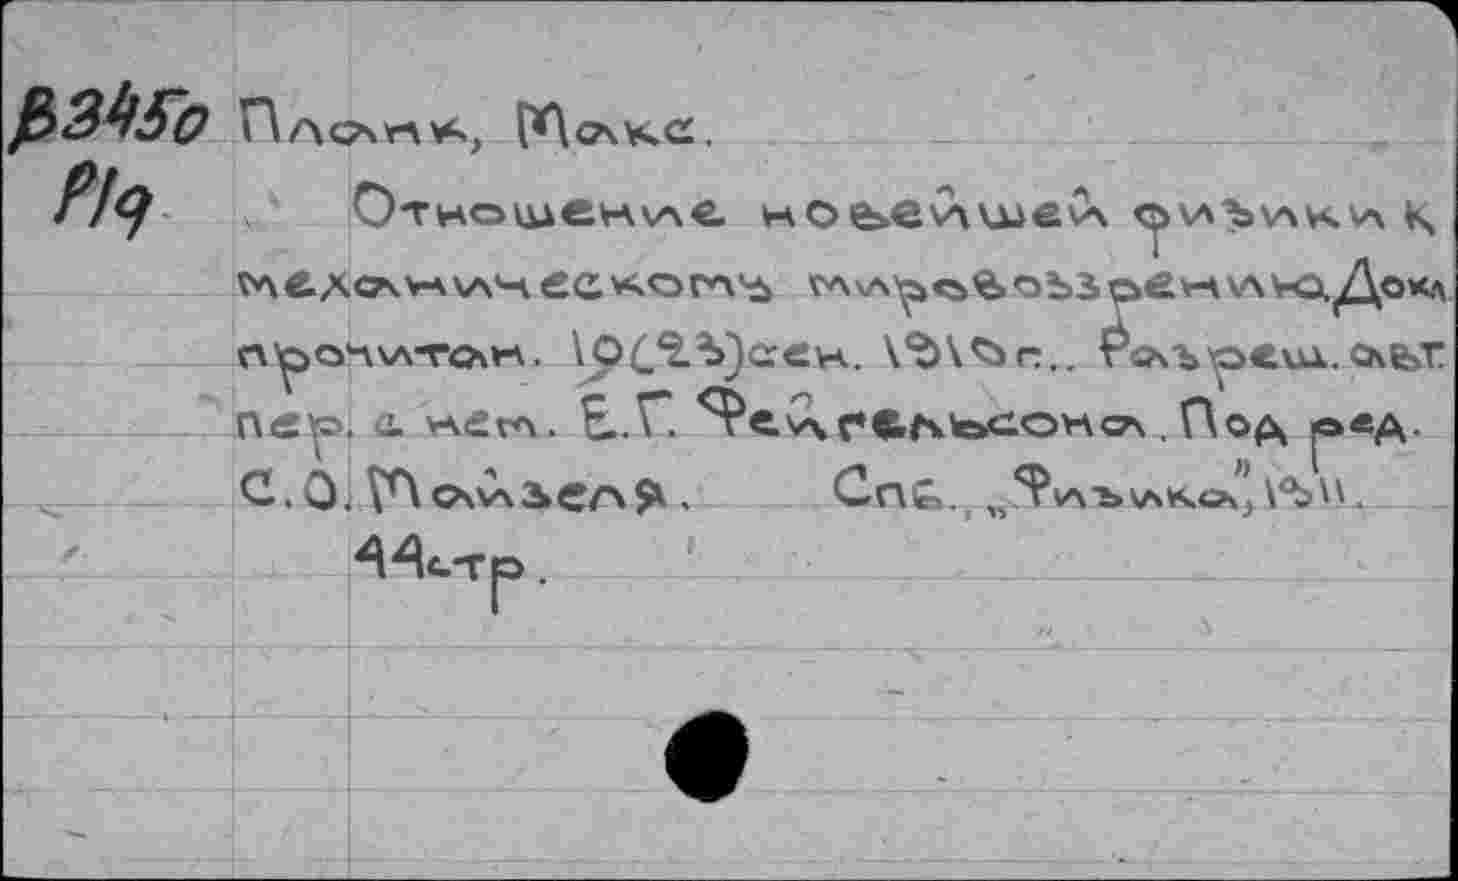 В3450 Планк, Макс.
P19 Отношение новейшей физики к
механическому мировоззрению. Докл
прочитан. 10(23)сен. 1910г.. Разреш. авт.
пер. с нем. Е.Г. Фейгельсона. Под ред.
С.О. Майзеля. Спб., „Физика", 1911.
44стр.